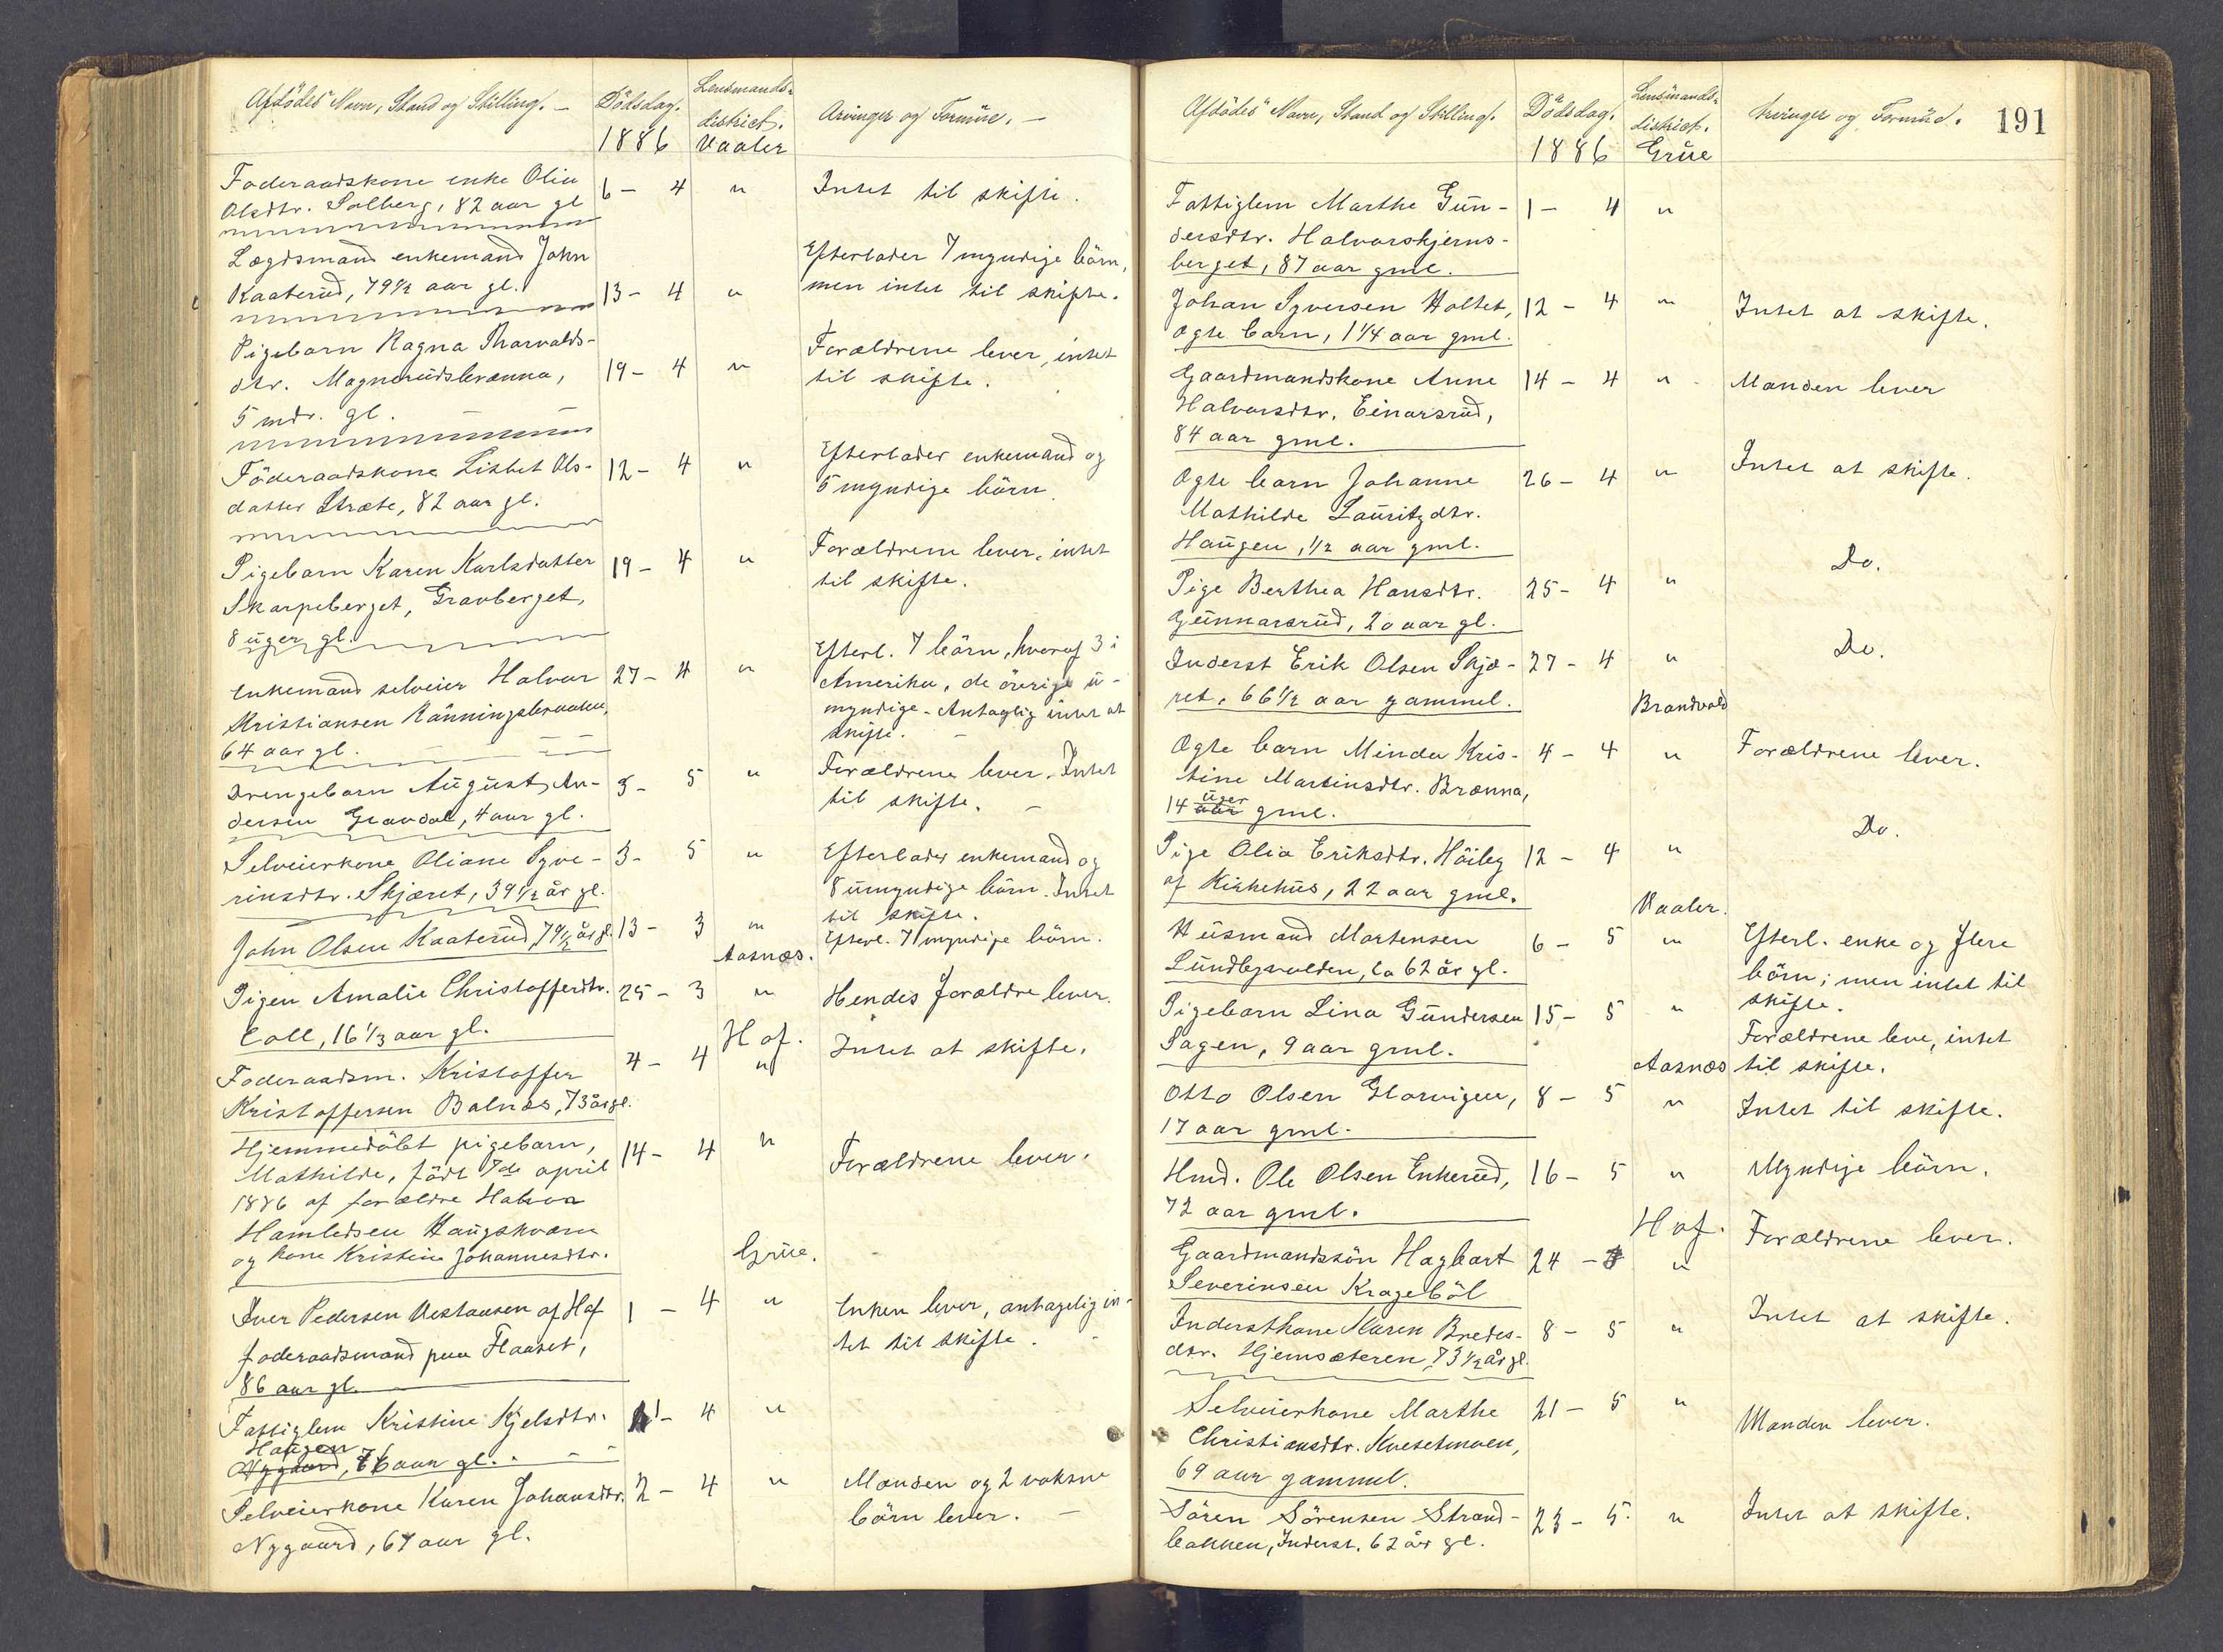 Afdödes Navn, Stand og Stilling. – Dödsdag. Lensmands-
district. Arvinger og Formue. –
1886 Vaaler
Foderaadskone enke Olia 6 – 4 " Intet til skifte.
Olsdtr. Solberg, 82 aar gl
Lægdsmand enkemand John Efterlader 7 myndige börn,
Kaaterud, 79½ aar gl. 13 – 4 " men intet til skifte.
Pigebarn Ragna Thorvalds- Forældrene lever, intet
dtr. Magnerudsbrænna, 19 – 4 " til skifte.
5 mdr. gl.
Föderaadskone Lisbet Ols- 12 – 4 " Efterlader enkemand og
datter Stræte, 82 aar gl. 5 myndige börn.
Pigebarn Karen Karlsdatter 19 – 4 " Forældrene lever, intet
Skarpeberget, Gravberget, til skifte.
8 uger gl.
Enkemand selveier Halvor 27 – 4 " Efterl. 7 börn, hvoraf 3 i
Kristiansen Rönningsbraaten, Amerika, de övrige u-
64 aar gl. myndige – Antaglig intet at
skifte. –
Drengebarn August An- 3 – 5 " Forældrene lever. Intet
dersen Gravdal, 4 aar gl. til skifte. –
Selveierkone Oliane Syve- 3 – 5 " Efterlader enkemand og
rinsdtr. Skjæret, 39½ år gl. 8 umyndige börn. Intet
til skifte.
John Olsen Kaaterud, 79½ år gl. 13 – 3 " Efterl. 7 myndige börn.
Aasnæs.
Pigen Amalie Christofferdtr. 25 – 3 " Hendes forældre lever.
Coll, 16⅓ aar gl.
Hof.
Foderaadsm. Kristoffer 4 – 4 " Intet at skifte.
Kristoffersen Balnæs, 73 år gl.
Hjemmedöbt pigebarn, 14 – 4 " Forældrene lever.
Mathilde, födt 7de april
1886 af forældre Halvor
Hamletsen Haugskværn
og kone Kristine Johannesdtr.
Grue.
Iver Pedersen Uestausen af Hof 1 – 4 " Enken lever, antagelig in-
foderaadsmand paa Flaaset, tet til skifte. –
86 aar gl.
Fattiglem Kristine Kjelsdtr. 1 – 4 "
Haugen
Nygaard, 76 aar gl.
Selveierkone Karen Johansdtr. 2 – 4 " Manden og 2 voksne
Nygaard, 67 aar gl. börn lever. –
Afdödes Navn, Stand og Stilling. Dödsdag. Lensmands-
district. Arvinger og Formue. 191
1886 Grue
Fattiglem Marthe Gun- 1 – 4 "
dersdtr. Halvorskjerns-
berget, 87 aar gml.
Johan Syversen Holtet, 12 – 4 " Intet at skifte.
ægte barn, 1¼ aar gml.
Gaardmandskone Anne 14 – 4 " Manden lever
Halvorsdtr. Einarsrud,
84 aar gml.
Ægte barn Johanne 26 – 4 " Intet at skifte.
Mathilde Lauritzdtr.
Haugen, ½ aar gml.
Pige Berthea Hansdtr. 25 – 4 " Do.
Gunnarsrud, 20 aar gl.
Inderst Erik Olsen Skjæ- 27 – 4 " Do.
ret, 66½ aar gammel.
Brandvold
Ægte barn Minda Kris- 4 – 4 " Forældrene lever.
tine Martinsdtr. Brænna,
uger
14 aar gml.
Pige Olia Eriksdtr. Höiby 12 – 4 " Do.
af Kirkehus, 22 aar gml.
Vaaler.
Husmand Mortensen 6 – 5 " Efterl. enke og flere
Lundbyvolden, ca 62 år gl. börn; men intet til
skifte.
Pigebarn Lina Gundersen 15 – 5 " Forældrene leve, intet
Sagen, 9 aar gml. til skifte.
Aasnæs
Otto Olsen Glorvigen, 8 – 5 " Intet til skifte.
17 aar gml.
Hmd. Ole Olsen Enkerud, 16 – 5 " Myndige börn.
72 aar gml.
Hof.
Gaardmandssön Hagbart 24 – " Forældrene lever.
Severinsen Krageböl
Inderstkone Maren Bredes- 8 – 5 " Intet at skifte.
dtr. Hjemsæteren, 73½ år gl.
Selveierkone Marthe 21 – 5 " Manden lever.
Christiansdtr. Kvesetmoen,
69 aar gammel.
Sören Sörensen Strand- 23 – 5 " Intet at skifte.
bakken, Inderst, 62 år gl.